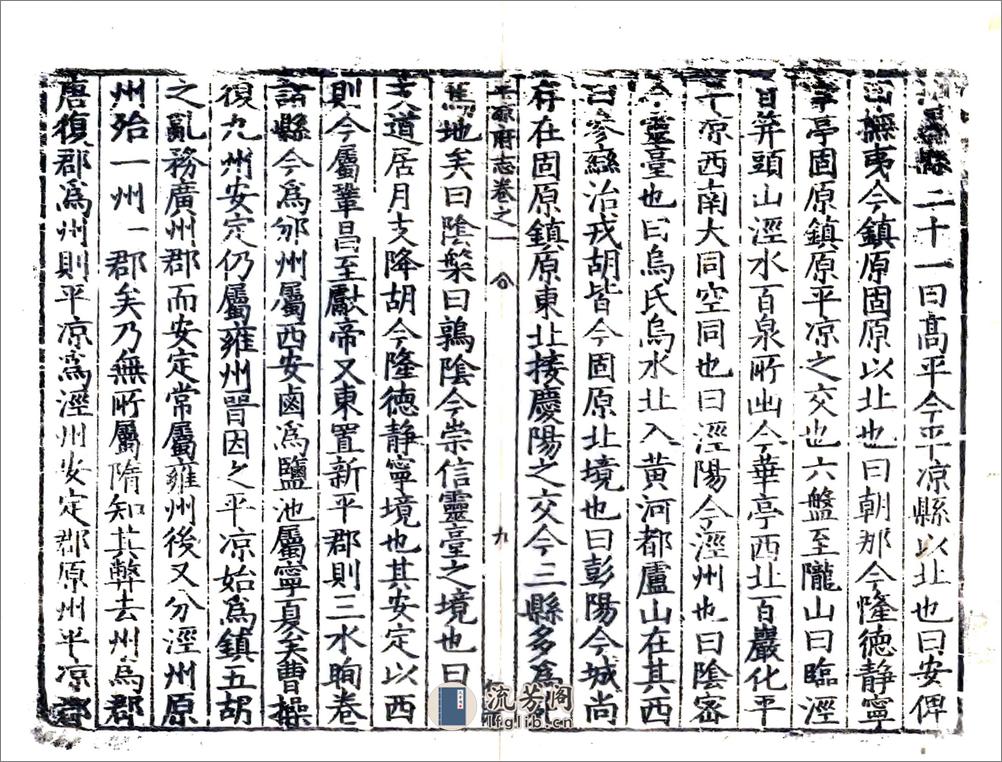 縣二十一曰高平今平凉縣以北也曰安俾
撫夷今鎮原固原以北也曰朝那今隆德静寧
亭固原鎮原平凉之交也六盤至隴山曰臨涇
曰幵頭山涇水百泉所出今華亭西北百巖化平
凉西南大同空同也曰涇陽今涇州也曰陰密
今靈臺也曰烏氏烏水北入黃河都盧山在其西
曰參䜌治戎胡皆今固原北境也曰彭陽今城尚
存在固原鎮原東北接慶陽之交今三縣多爲
平凉府志卷之一
九
馬地矣曰陰槃曰鶉陰今崇信靈臺之境也曰
道居月支降胡今隆德静寧境也其安定以西
則今屬鞏昌至獻帝又東置新平郡則三水眴卷
諸縣今爲邠州屬西安鹵爲鹽池屬寧夏矣曹操
復九州安定仍屬雍州晉因之平凉始爲鎮五胡
之亂務廣州郡而安定常屬雍州後又分涇州原
州殆一州一郡矣乃無所屬隋知其弊去州爲郡
唐復郡爲州則平凉爲涇州安定郡原州平凉郡
流芳阁
lfglib.cn